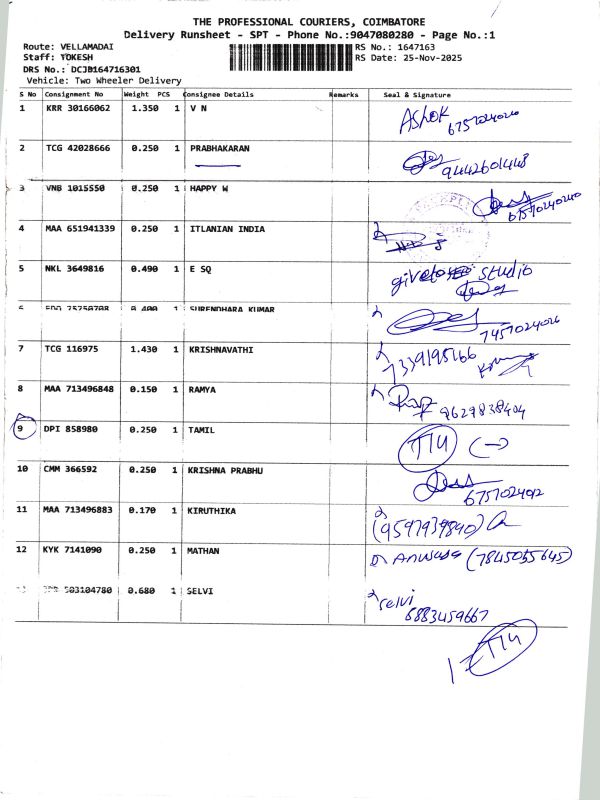 THE PROFESSIONAL COURIERS, COIMBATORE
Delivery Runsheet - SPT - Phone No.:9047080280 - Page No.:1
Route: VELLAMADAI RS No.: 1647163
Staff: YOKESH RS Date: 25-Nov-2025
DRS No.: DCJB164716301
Vehicle: Two Wheeler Delivery
S No Consignment No Weight PCS Consignee Details Remarks Seal & Signature
1 KRR 30166062 1.350 1 V N Ashok
2 TCG 42028666 0.250 1 PRABHAKARAN 9442601448
3 VNB 1015550 0.250 1 HAPPY W
4 MAA 651941339 0.250 1 ITLANIAN INDIA
5 NKL 3649816 0.490 1 E SQ studio
0.400 1 SURENDHARA KUMAR 7457024026
7 TCG 116975 1.430 1 KRISHNAVATHI 7339195166
8 MAA 713496848 0.150 1 RAMYA 9629838404
9 DPI 858980 0.250 1 TAMIL
10 CMM 366592 0.250 1 KRISHNA PRABHU
11 MAA 713496883 0.170 1 KIRUTHIKA (9597939890)
12 KYK 7141090 0.250 1 MATHAN (7845055645)
503104780 0.680 1 SELVI selvi
6883459667